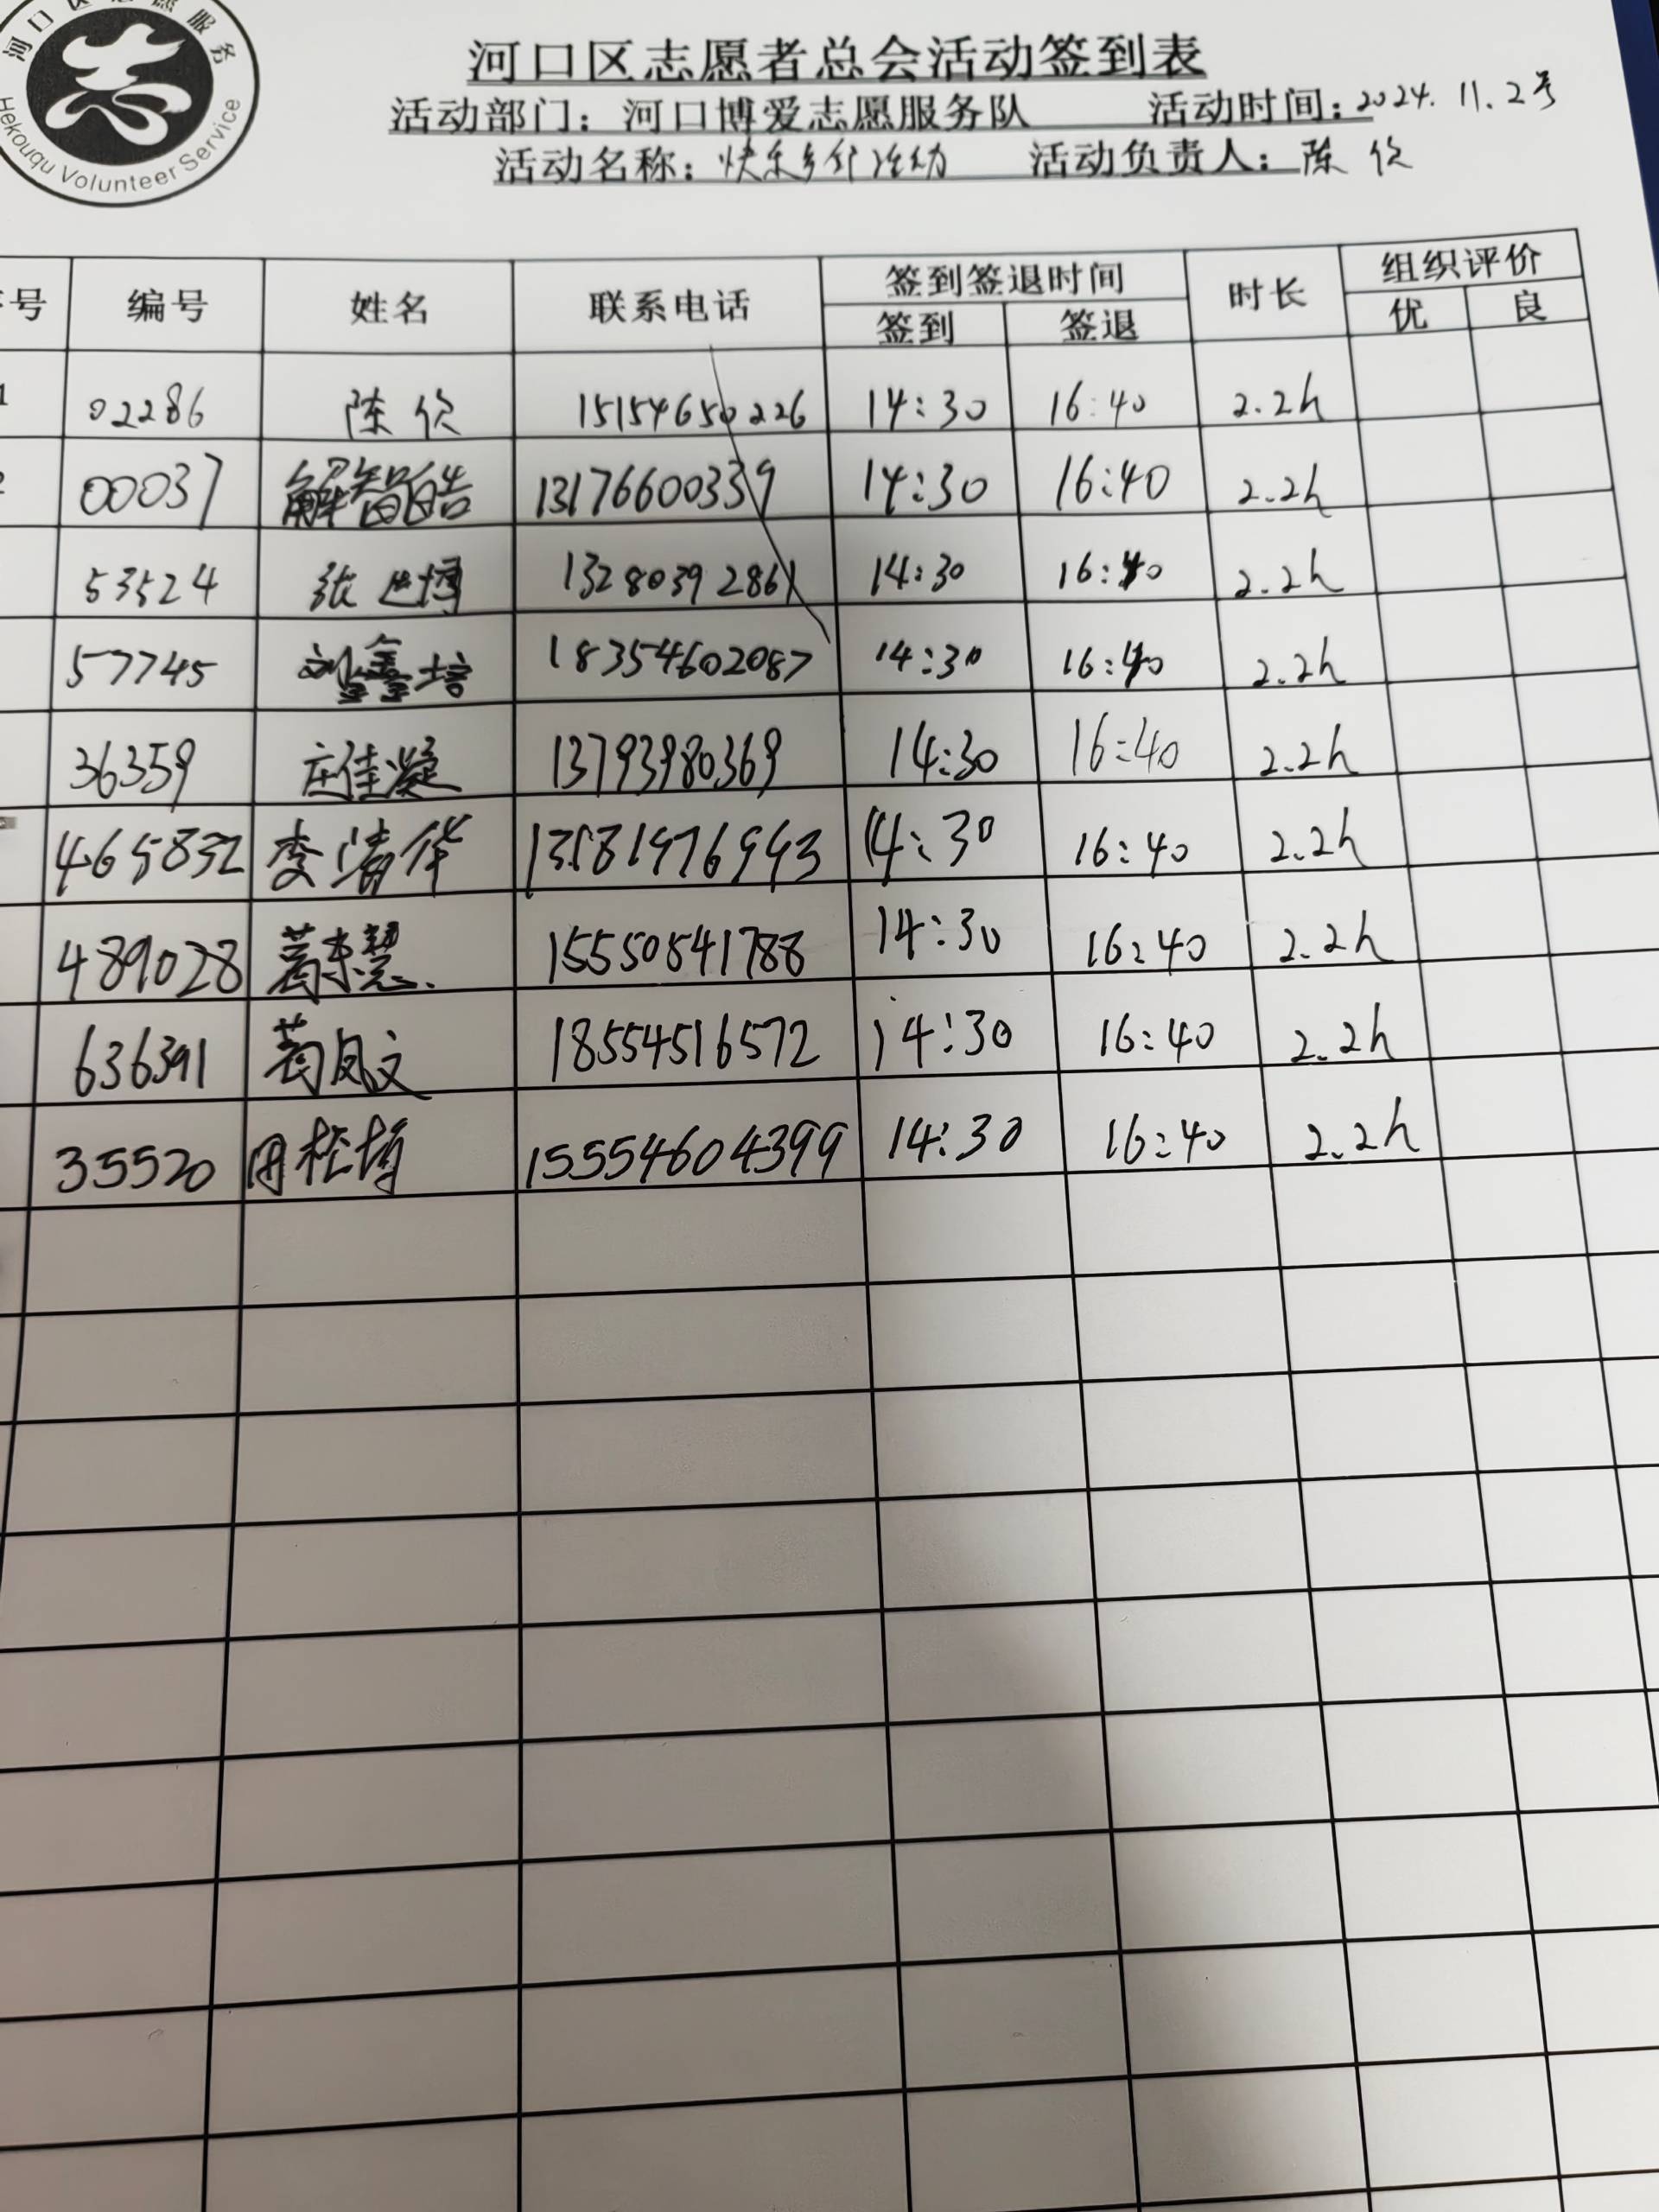 河口区志愿服务
Hekouqu Volunteer Service
河口区志愿者总会活动签到表
活动部门：河口博爱志愿服务队 活动时间：2024.11.2号
活动名称：快乐乡行活动 活动负责人：陈
号 编号 姓名 联系电话 签到签退时间 时长 组织评价
签到 签退 优 良
1 02286 陈 15154650226 14:30 16:40 2.2h
2 00037 解智皓 13176600339 14:30 16:40 2.2h
53524 张博 13280392861 14:30 16:40 2.2h
57745 刘鑫培 18354602087 14:30 16:40 2.2h
36359 庄佳凝 13793980369 14:30 16:40 2.2h
465832 李清华 14:30 16:40 2.2h
489028 葛东慧 15550541788 14:30 16:40 2.2h
636391 葛凤文 18554516572 14:30 16:40 2.2h
35520 田松 15554604399 14:30 16:40 2.2h